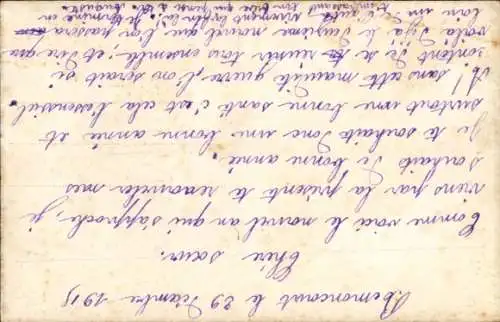 Remoncourt le 29 Décembre 1915
Chère sœur.
Comme voici le nouvel an qui s'approche, je
viens par la présente te renouveler mes
souhaits de bonne année.
Je te souhaite donc une bonne année et
surtout une bonne santé c'est cela l'essenciel.
A! sans cette maudite guerre, l'on serait si
content de se réunir tous ensemble; et dire que
voilà déjà le deuxième nouvel an que l'on passera
loin